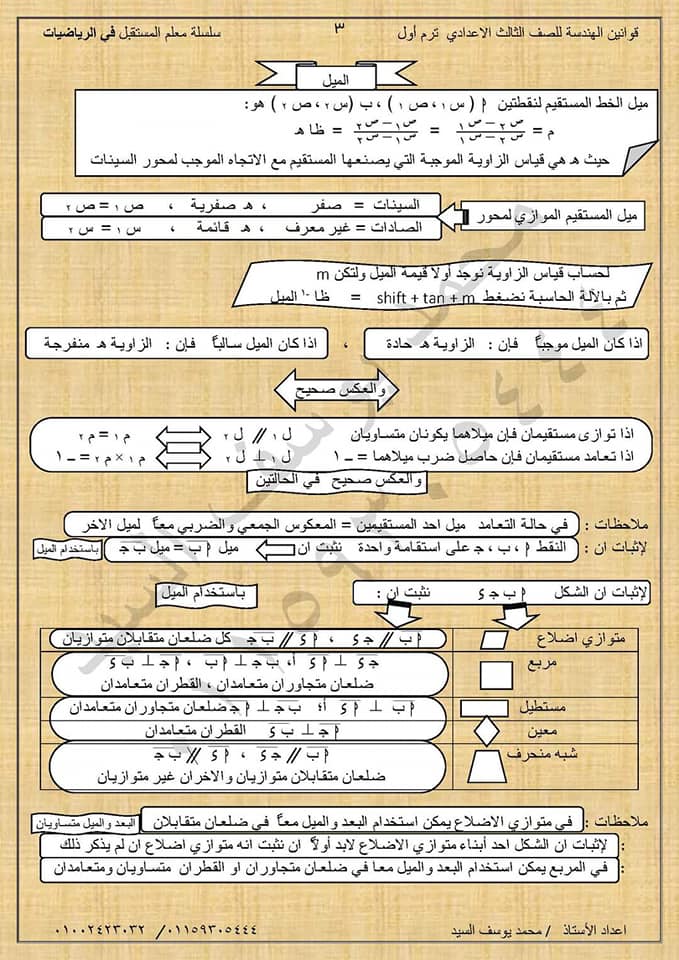 قوانين الهندسة للصف الثالث الاعدادي ترم أول ٣ سلسلة معلم المستقبل في الرياضيات
الميل
ميل الخط المستقيم لنقطتين أ ( س١، ص١ ) ، ب ( س٢، ص٢ ) هو:
م = (ص٢ – ص١)/(س٢ – س١) = (ص١ – ص٢)/(س١ – س٢) = ظا هـ
حيث هـ هي قياس الزاوية الموجبة التي يصنعها المستقيم مع الاتجاه الموجب لمحور السينات
ميل المستقيم الموازي لمحور
السينات = صفر ، هـ صفرية ، ص١ = ص٢
الصادات = غير معرف ، هـ قائمة ، س١ = س٢
لحساب قياس الزاوية نوجد أولا قيمة الميل ولتكن m
ثم بالآلة الحاسبة نضغط shift + tan + m = ظا⁻¹ الميل
اذا كان الميل موجباً فإن : الزاوية هـ حادة ، اذا كان الميل سالباً فإن : الزاوية هـ منفرجة
والعكس صحيح
اذا توازى مستقيمان فإن ميلاهما يكونان متساويان ل١ // ل٢ م١ = م٢
اذا تعامد مستقيمان فإن حاصل ضرب ميلاهما = – ١ ل١ ⊥ ل٢ م١ × م٢ = – ١
والعكس صحيح في الحالتين
ملاحظات : في حالة التعامد ميل احد المستقيمين = المعكوس الجمعي والضربي معاً لميل الاخر
لإثبات ان : النقط أ ، ب ، جـ على استقامة واحدة نثبت ان ميل أ ب = ميل ب جـ باستخدام الميل
لإثبات ان الشكل أ ب جـ ء نثبت ان : باستخدام الميل
متوازي اضلاع أ ب // جـ ء ، أ ء // ب جـ كل ضلعان متقابلان متوازيان
مربع جـ ء ⊥ أ ء أ، ب جـ ⊥ أ ب ، أ جـ ⊥ ب ء
ضلعان متجاوران متعامدان ، القطران متعامدان
مستطيل أ ب ⊥ أ ء أ؛ ب جـ ⊥ أ جـ ضلعان متجاوران متعامدان
معين أ جـ ⊥ ب ء القطران متعامدان
شبه منحرف أ ب // جـ ء ، أ ء // ب جـ
ضلعان متقابلان متوازيان والاخران غير متوازيان
ملاحظات : في متوازي الاضلاع يمكن استخدام البعد والميل معاً في ضلعان متقابلان البعد والميل متساويان
: لإثبات ان الشكل احد أبناء متوازي الاضلاع لابد أولاً ان نثبت انه متوازي اضلاع ان لم يذكر ذلك
: في المربع يمكن استخدام البعد والميل معا في ضلعان متجاوران او القطران متساويان ومتعامدان
اعداد الأستاذ / محمد يوسف السيد ٠١١٥٩٣٠٥٤٤٤ / ٠١٠٠٢٤٢٣٠٣٢